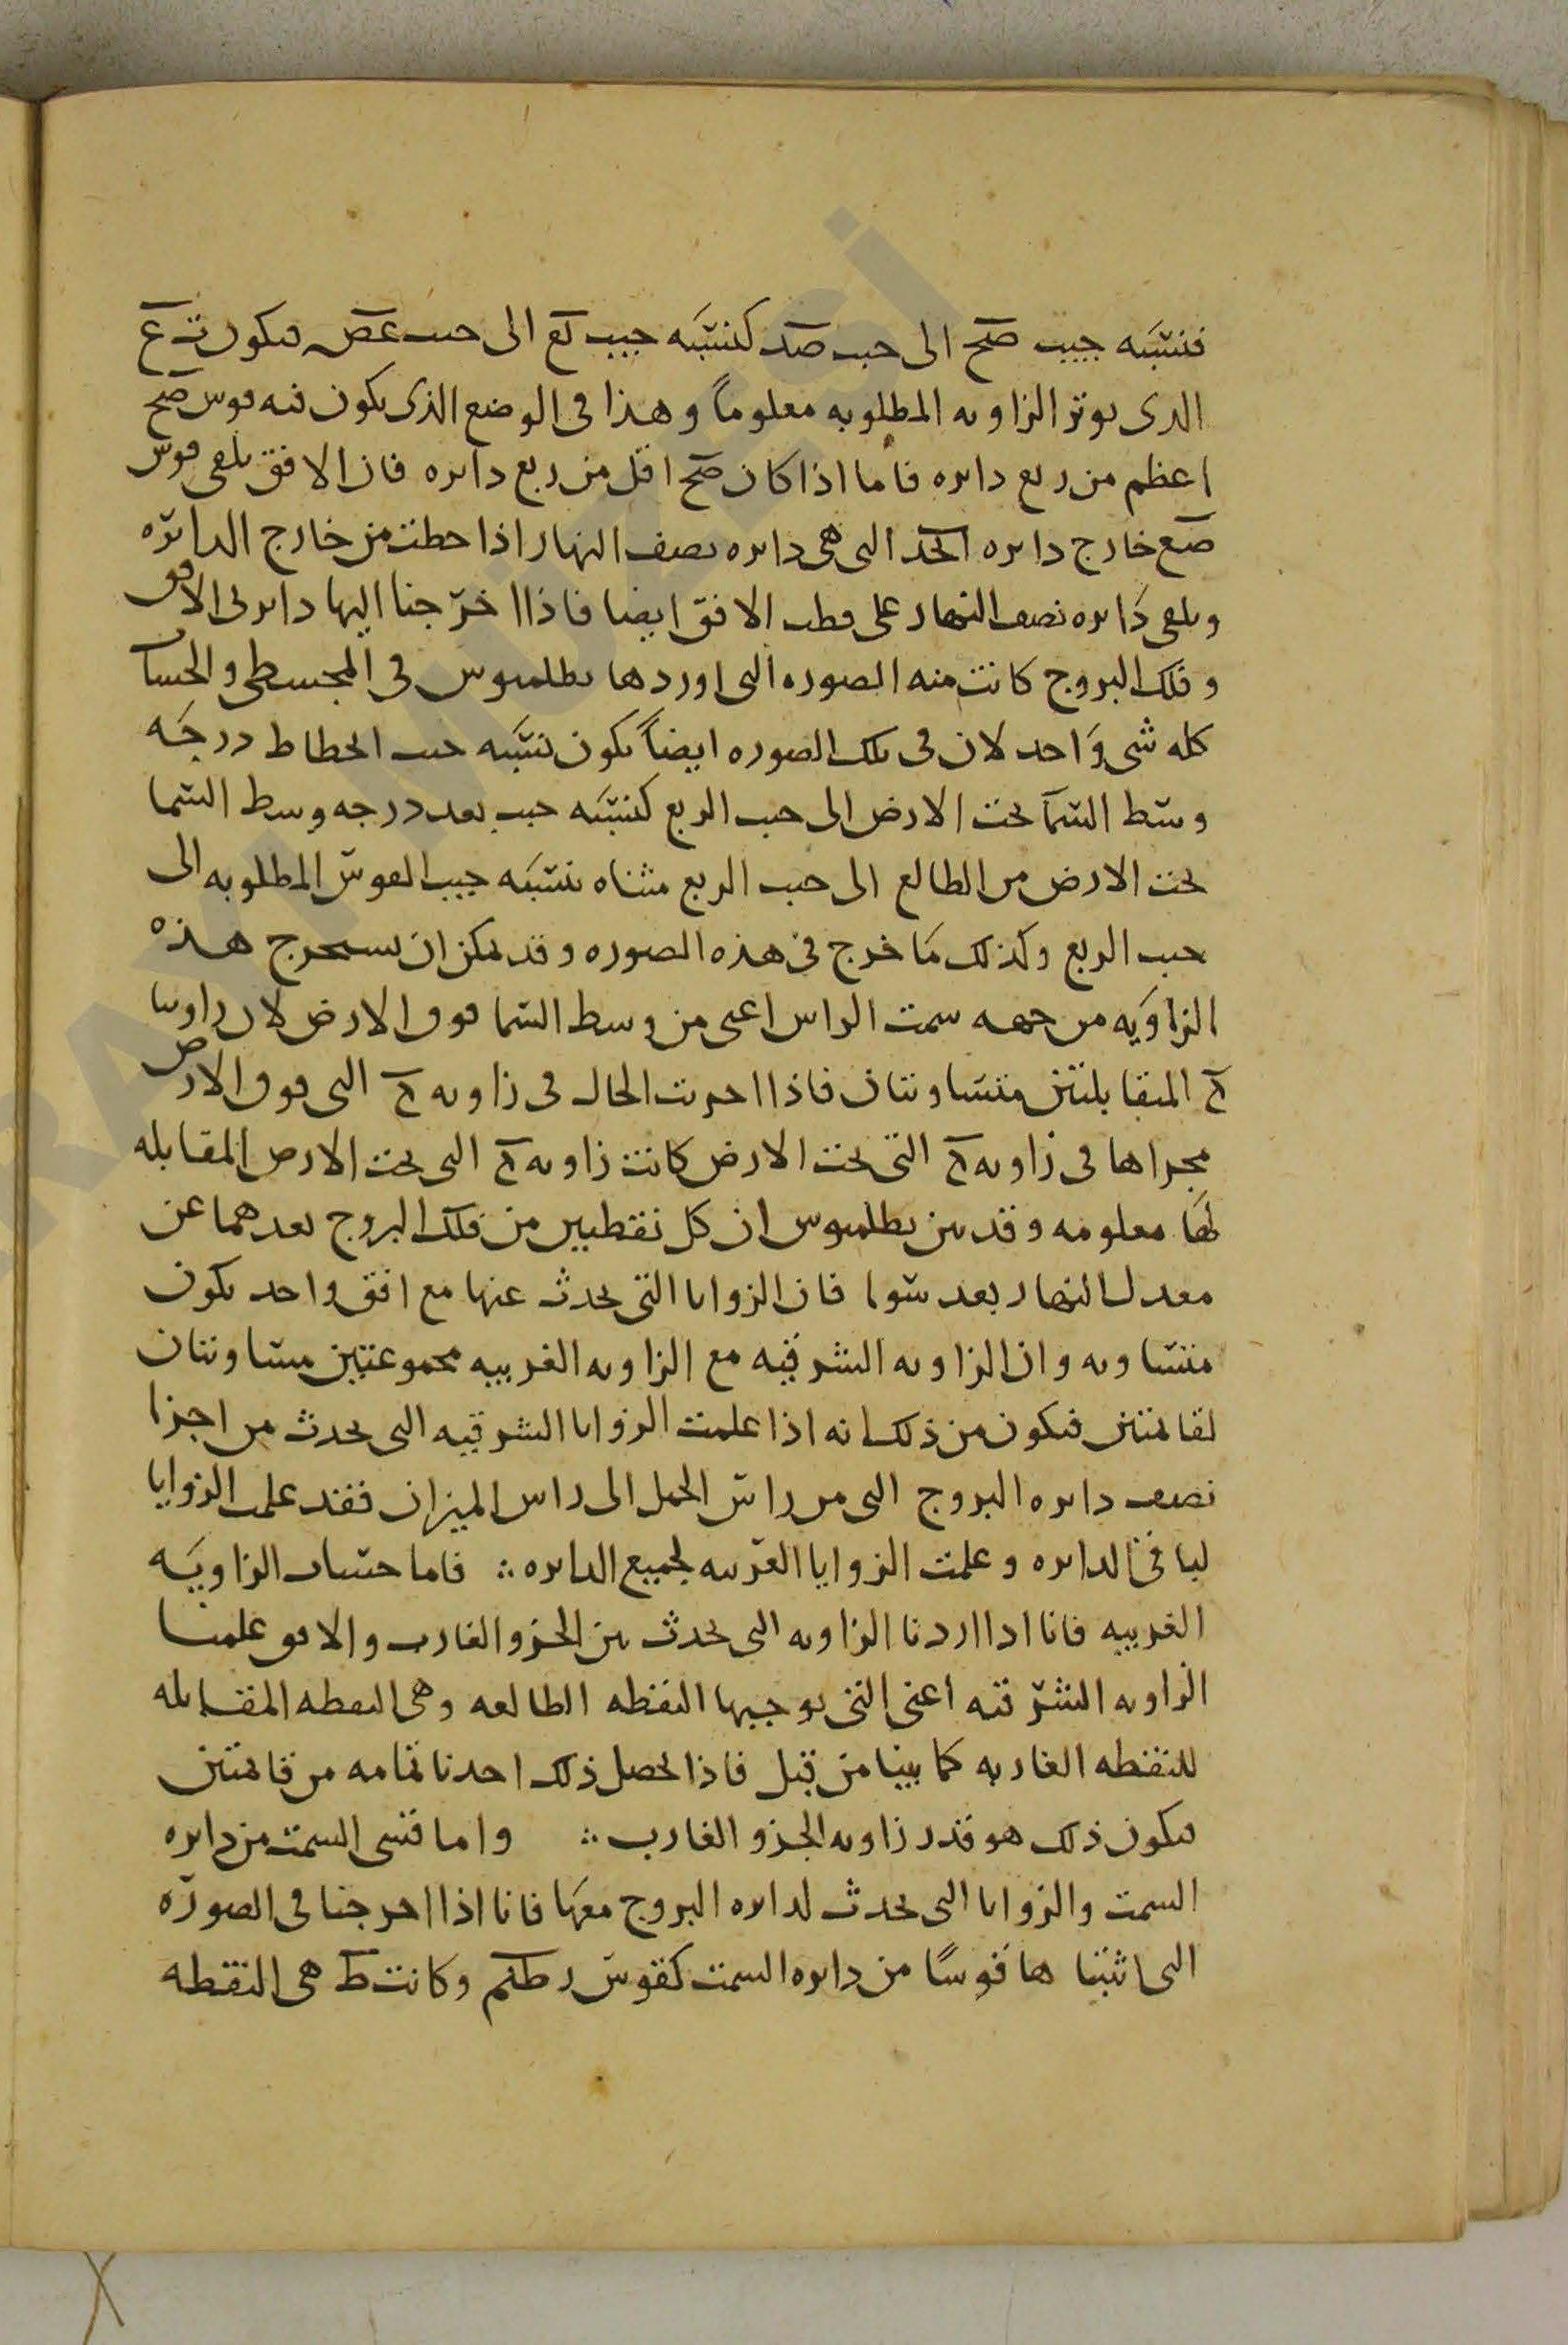 فنسبة جيب صح الى جيب صد كنسبة جيب كع الى جيب عص فيكون ت ع
الذى يوتر الزاويه المطلوبه معلوماً وهذا فى الوضع الذى يكون فيه قوس صح
اعظم من ربع دايره فاما اذا كان صح اقل من ربع دايره فان الافق يلقى قوس
صع خارج دايره الحد التى هى دايره نصف النهار اذا حطت من خارج الدايره
ويلقى دايره نصف النهار على قطب الافق ايضا فاذا اخرجنا اليها دايرتى الافق
وفلك البروج كانت منه الصوره التى اوردها بطلميوس فى المجسطى والحساب
كله شى واحد لان فى تلك الصوره ايضاً يكون نسبة جيب انحطاط درجة
وسط السما تحت الارض الى جيب الربع كنسبة جيب بعد درجه وسط السما
تحت الارض من الطالع الى جيب الربع مثناه بنسبة جيب القوس المطلوبه الى
جيب الربع وكذلك ما خرج فى هذه الصوره وقد يمكن ان يستخرج هذه
الزاوية من جهه سمت الراس اعنى من وسط السما فوق الارض لان زاويتا
ح المتقابلتين متساويتان فاذا اجريت الحال فى زاويه ح التى فوق الارض
مجراها فى زاويه ح التى تحت الارض كانت زاويه ح التى تحت الارض المقابله
لها معلومه وقد بين بطلميوس ان كل نقطتين من فلك البروج بعدهما عن
معدل النهار بعد سوا فان الزوايا التى تحدث عنها مع افق واحد يكون
متساويه وان الزاويه الشرقيه مع الزاويه الغربيه مجموعتين متساويتان
لقايمتين فيكون من ذلك انه اذا علمت الزوايا الشرقيه التى تحدث من اجزا
نصف دايره البروج التى من راس الحمل الى راس الميزان فقد علمت الزوايا
لباقى الدايره وعلمت الزوايا الغربيه لجميع الدايره ∴ فاما حساب الزاوية
الغربيه فانا اذا اردنا الزاويه التى تحدث بين الجزو الغارب والافق علمنا
الزاويه الشرقيه اعنى التى توجبها النقطه الطالعه وهى النقطه المقابله
للنقطه الغاربه كما بينا من قبل فاذا تحصل ذلك اخذنا تمامه من قايمتين
فيكون ذلك هو قدر زاويه الجزو الغارب ∴ واما قسى السمت من دايره
السمت والزوايا التى تحدث لدايره البروج معها فانا اذا اخرجنا فى الصورة
التى اثبتناها قوسًا من دايره السمت كقوس رطكم وكانت ط هى النقطه